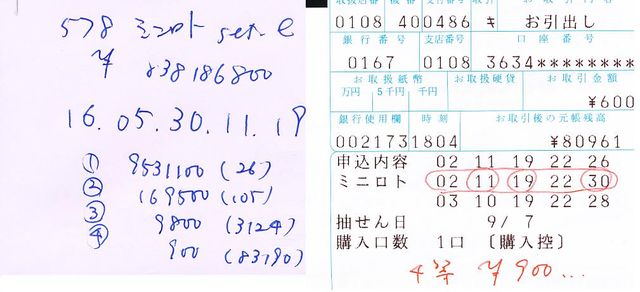 578 ミニロト set. e
¥ 838186800
16.05.30.11.19
① 9531100 (26)
② 169500 (105)
③ 9800 (3124)
④ 900 (83190)
0108 40 0486 キ お引出し
銀行番号 支店番号 口座番号
0167 0108 3634********
お取扱紙幣 お取扱硬貨 お取引金額
万円 5千円 千円
¥600
銀行使用欄 時刻 お取引後の元帳残高
002173 1804 ¥80961
申込内容 02 11 19 22 26
ミニロト 02 11 19 22 30
03 10 19 22 28
抽せん日 9/ 7
購入口数 1口 〔購入控〕
4等 ¥900...